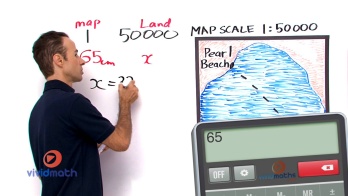 map Land
1 50000
65cm x
x = 32
MAP SCALE 1:50000
Pearl
Beach
65
OFF
vividmath